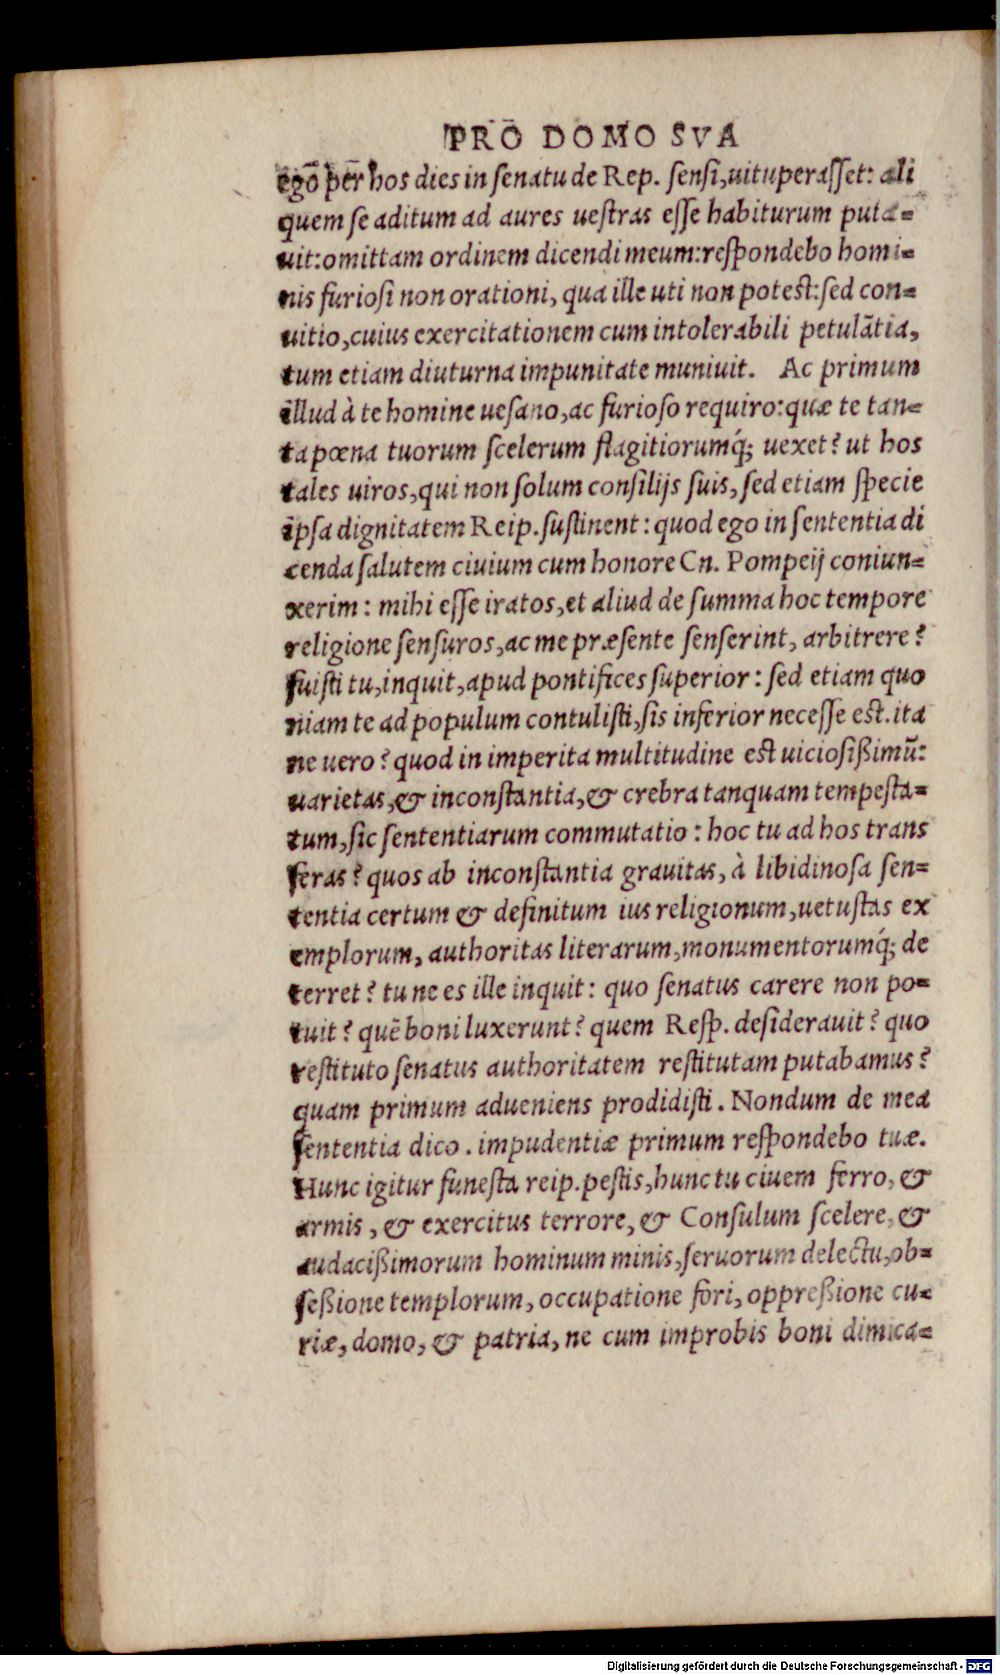 PRO DOMO SVA
ego per hos dies in ſenatu de Rep. ſenſi, uituperaſſet: ali
quem ſe aditum ad aures ueſtras eſſe habiturum puta-
uit: omittam ordinem dicendi meum: reſpondebo homi-
nis furioſi non orationi, qua ille uti non poteſt: ſed con-
uitio, cuius exercitationem cum intolerabili petulãtia,
tum etiam diuturna impunitate muniuit. Ac primum
illud à te homine ueſano, ac furioſo requiro: quæ te tan-
ta pœna tuorum ſcelerum flagitiorumq́; uexet? ut hos
tales uiros, qui non ſolum conſilijs ſuis, ſed etiam ſpecie
ipſa dignitatem Reip. ſuſtinent: quod ego in ſententia di
cenda ſalutem ciuium cum honore Cn. Pompeij coniun-
xerim: mihi eſſe iratos, et aliud de ſumma hoc tempore
religione ſenſuros, ac me præſente ſenſerint, arbitrere?
fuiſti tu, inquit, apud pontifices ſuperior: ſed etiam quo
niam te ad populum contuliſti, ſis inferior neceſſe eſt. ita
ne uero? quod in imperita multitudine eſt uicioſißimũ:
uarietas, & inconſtantia, & crebra tanquam tempeſta-
tum, ſic ſententiarum commutatio: hoc tu ad hos trans
feras? quos ab inconſtantia grauitas, à libidinoſa ſen-
tentia certum & definitum ius religionum, uetuſtas ex
emplorum, authoritas literarum, monumentorumq́; de
terret? tu ne es ille inquit: quo ſenatus carere non po-
tuit? quẽ boni luxerunt? quem Reſp. deſiderauit? quo
reſtituto ſenatus authoritatem reſtitutam putabamus?
quam primum adueniens prodidiſti. Nondum de mea
ſententia dico. impudentiæ primum reſpondebo tuæ.
Hunc igitur funeſta reip. peſtis, hunc tu ciuem ferro, &
armis, & exercitus terrore, & Conſulum ſcelere, &
audacißimorum hominum minis, ſeruorum delectu, ob-
ſeßione templorum, occupatione fori, oppreßione cu-
riæ, domo, & patria, ne cum improbis boni dimica-
Digitalisierung gefördert durch die Deutsche Forschungsgemeinschaft - DFG